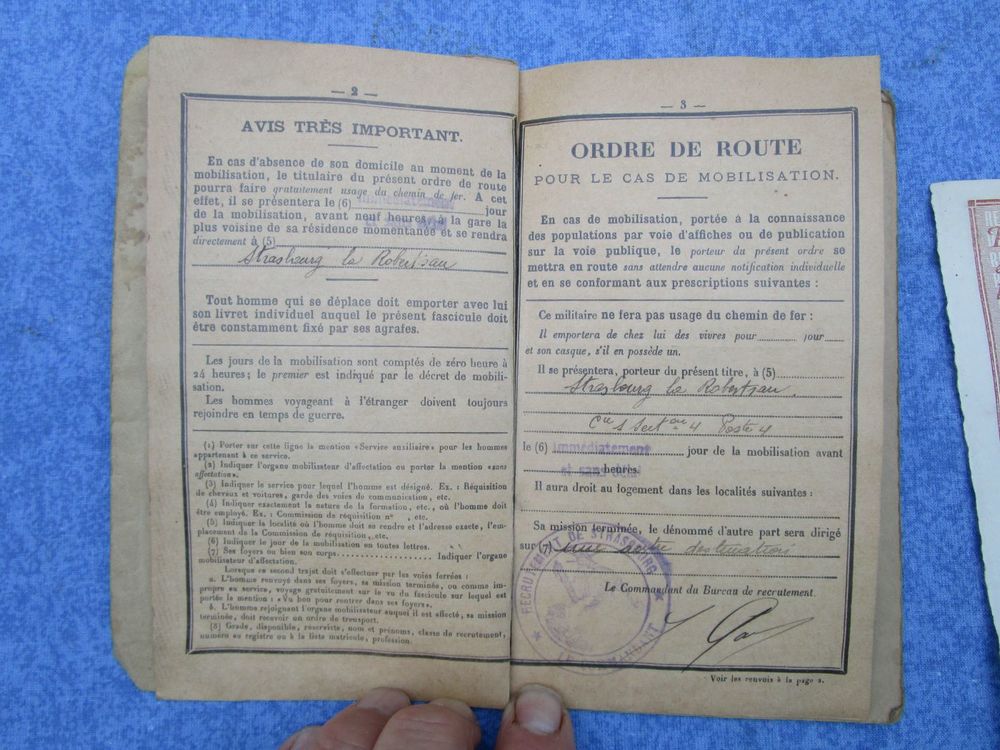 — 2 —
AVIS TRÈS IMPORTANT.
En cas d'absence de son domicile au moment de la
mobilisation, le titulaire du présent ordre de route
pourra faire gratuitement usage du chemin de fer. A cet
effet, il se présentera le (6) immédiatement jour
de la mobilisation, avant neuf heures, à la gare la
plus voisine de sa résidence momentanée et se rendra
directement à (5)
Strasbourg la Robertsau
Tout homme qui se déplace doit emporter avec lui
son livret individuel auquel le présent fascicule doit
être constamment fixé par ses agrafes.
Les jours de la mobilisation sont comptés de zéro heure à
24 heures; le premier est indiqué par le décret de mobili-
sation.
Les hommes voyageant à l'étranger doivent toujours
rejoindre en temps de guerre.
(1) Porter sur cette ligne la mention «Service auxiliaire» pour les hommes
appartenant à ce service.
(2) Indiquer l'organe mobilisateur d'affectation ou porter la mention «sans
affectation».
(3) Indiquer le service pour lequel l'homme est désigné. Ex. : Réquisition
de chevaux et voitures, garde des voies de communication, etc.
(4) Indiquer exactement la nature de la formation, etc., où l'homme doit
être employé. Ex. : Commission de réquisition n° , etc.
(5) Indiquer la localité où l'homme doit se rendre et l'adresse exacte, l'em-
placement de la Commission de réquisition, etc.
(6) Indiquer le jour de la mobilisation en toutes lettres.
(7) Ses foyers ou bien son corps. Indiquer l'organe
mobilisateur d'affectation.
Lorsque ce second trajet doit s'effectuer par les voies ferrées :
a. L'homme renvoyé dans ses foyers, sa mission terminée, ou comme im-
propre au service, voyage gratuitement sur le vu du fascicule sur lequel est
portée la mention : «Vu bon pour rentrer dans ses foyers».
b. L'homme rejoignant l'organe mobilisateur auquel il est affecté, sa mission
terminée, doit recevoir un ordre de transport.
(8) Grade, disponible, réserviste, nom et prénoms, classe de recrutement,
numéro au registre ou à la liste matricule, profession.
— 3 —
ORDRE DE ROUTE
POUR LE CAS DE MOBILISATION.
En cas de mobilisation, portée à la connaissance
des populations par voie d'affiches ou de publication
sur la voie publique, le porteur du présent ordre se
mettra en route sans attendre aucune notification individuelle
et en se conformant aux prescriptions suivantes :
Ce militaire ne fera pas usage du chemin de fer :
Il emportera de chez lui des vivres pour jour
et son casque, s'il en possède un.
Il se présentera, porteur du présent titre, à (5)
Strasbourg la Robertsau
Cie 1 Section 4 Poste 4
le (6) immédiatement jour de la mobilisation avant
et sans heures.
Il aura droit au logement dans les localités suivantes :
Sa mission terminée, le dénommé d'autre part sera dirigé
sur (7) une autre destination
RECRUTEMENT DE STRASBOURG
Le Commandant du Bureau de recrutement
Voir les renvois à la page 2.